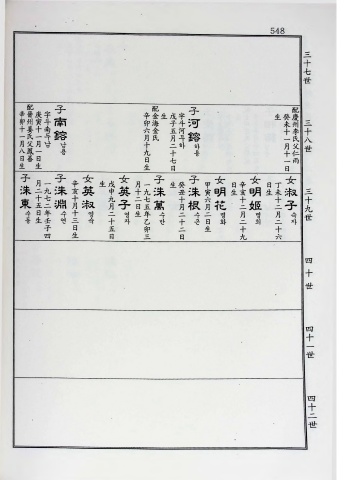 548
三十七世
三十八世
配慶州李氏父仁雨
癸未十一月十一日
生
子河鎔하용
字斗河두하
戊子五月二十七日
生
配金海金氏
辛卯六月十九日生
子南鎔남용
字斗南두남
庚寅十一月一日生
配晉州姜氏父鳳吾
辛卯十一月八日生
三十九世
女淑子숙자
丁未十二月二十六
日生
女明姬명희
辛亥十二月二十九
日生
女明花명화
甲寅六月二日生
子洙根수근
癸丑十月二十二日
生
子洙萬수만
一九七五年乙卯三
月十二日生
女英子영자
戊申九月二十五日
生
女英淑영숙
辛亥十月十三日生
子洙淵수연
一九七二年壬子四
月二十五日生
子洙東수동
四十世
四十一世
四十二世